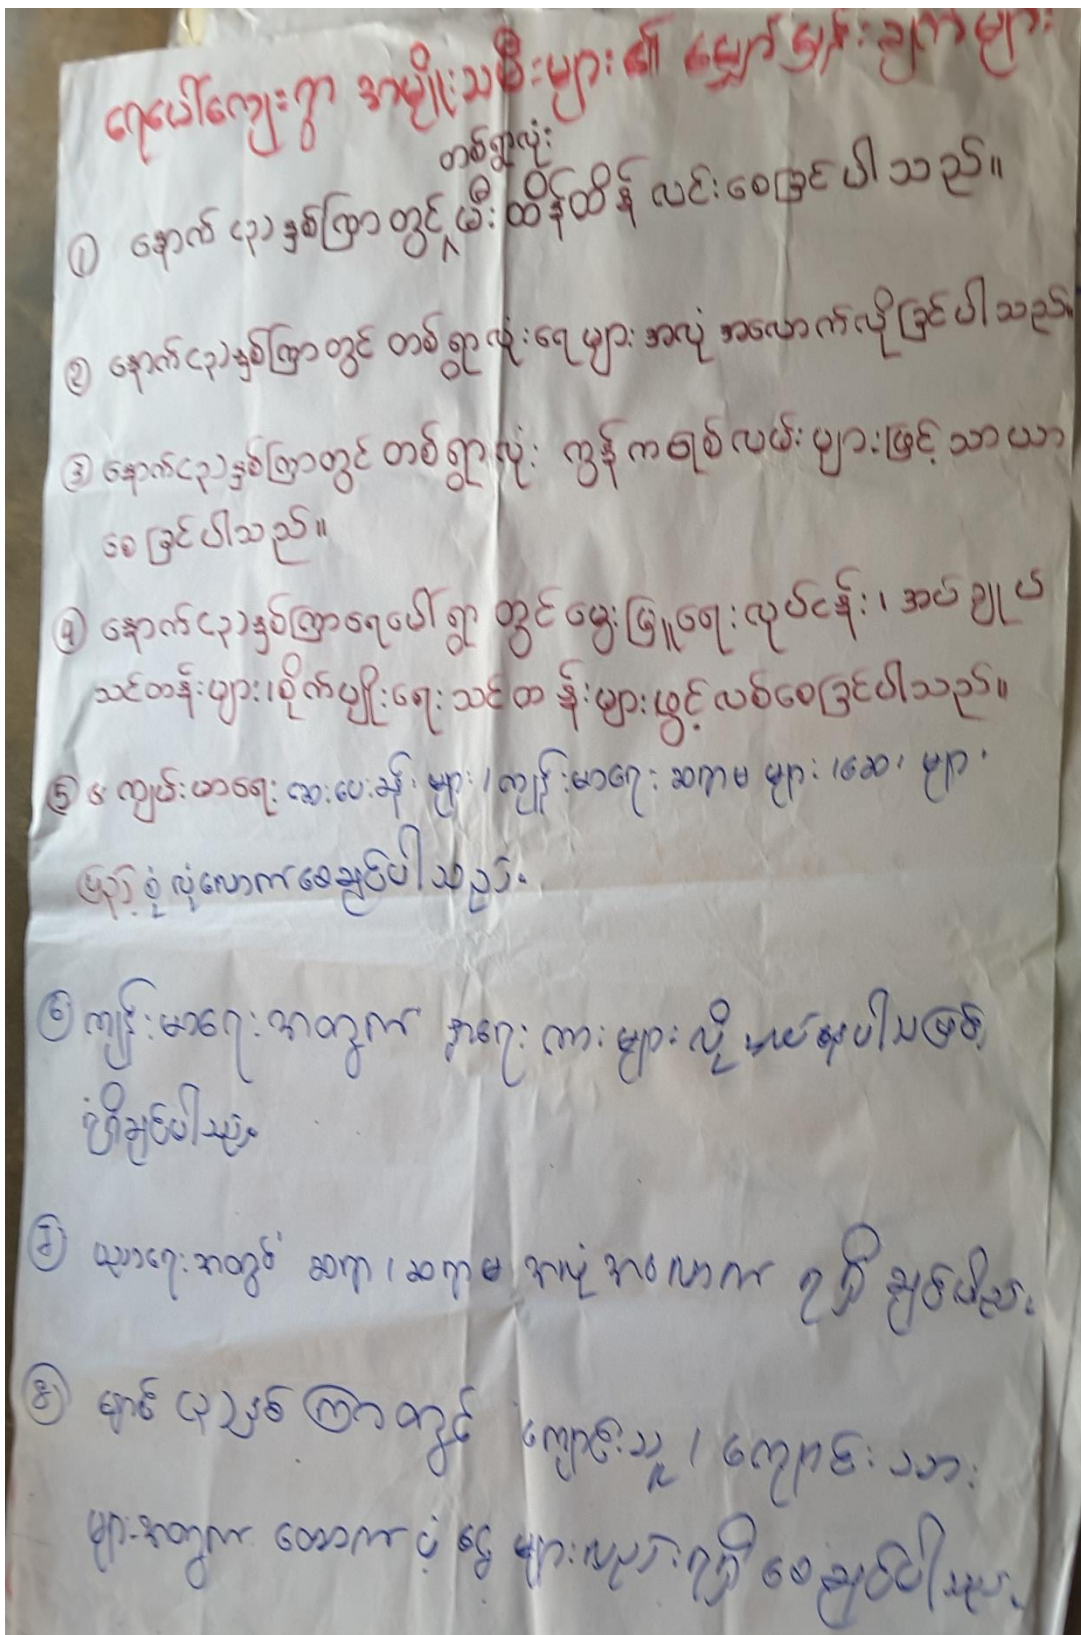 ရေပေါ်ကျေးရွာ အမျိုးသမီးများ၏ မျှော်မှန်းချက်များ
တစ်ရွာလုံး
① နောက် (၃) နှစ်ကြာတွင် မီးထိန်ထိန် လင်းစေခြင်ပါသည်။
② နောက်(၃)နှစ်ကြာတွင် တစ်ရွာလုံးရေများ အလုံအလောက်လိုခြင်ပါသည်။
③ နောက်(၃)နှစ်ကြာတွင် တစ်ရွာလုံး ကွန်ကရစ်လမ်းများဖြင့် သာယာ
စေခြင်ပါသည်။
၄ နောက်(၃)နှစ်ကြာရေပေါ်ရွာ တွင် မွေးမြူရေးလုပ်ငန်း၊ အပ်ချုပ်
သင်တန်းများ၊စိုက်ပျိုးရေးသင်တန်းများဖွင့်လစ်စေခြင်ပါသည်။
⑤ ကျမ်းမာရေး ဆေးပေးခန်းများ၊ ကျန်းမာရေး ဆရာမများ၊ဆေးများ
ပြည့်စုံလုံလောက်စေချင်ပါသည်။
⑥ ကျန်းမာရေးအတွက် အရေး ကားများ လို့
ရရှိချင်ပါသည်။
ပညာရေးအတွင် ဆရာ၊ ဆရာမ အလုံအလောက် ရရှိချင်ပါသည်။
⑧ နောင် (၃)နှစ်ကြာတွင် ကျောင်းသူ၊ ကျောင်းသား
များအတွက် ထောက်ပံ့ငွေများလည်းရရှိစေချင်ပါသည်။